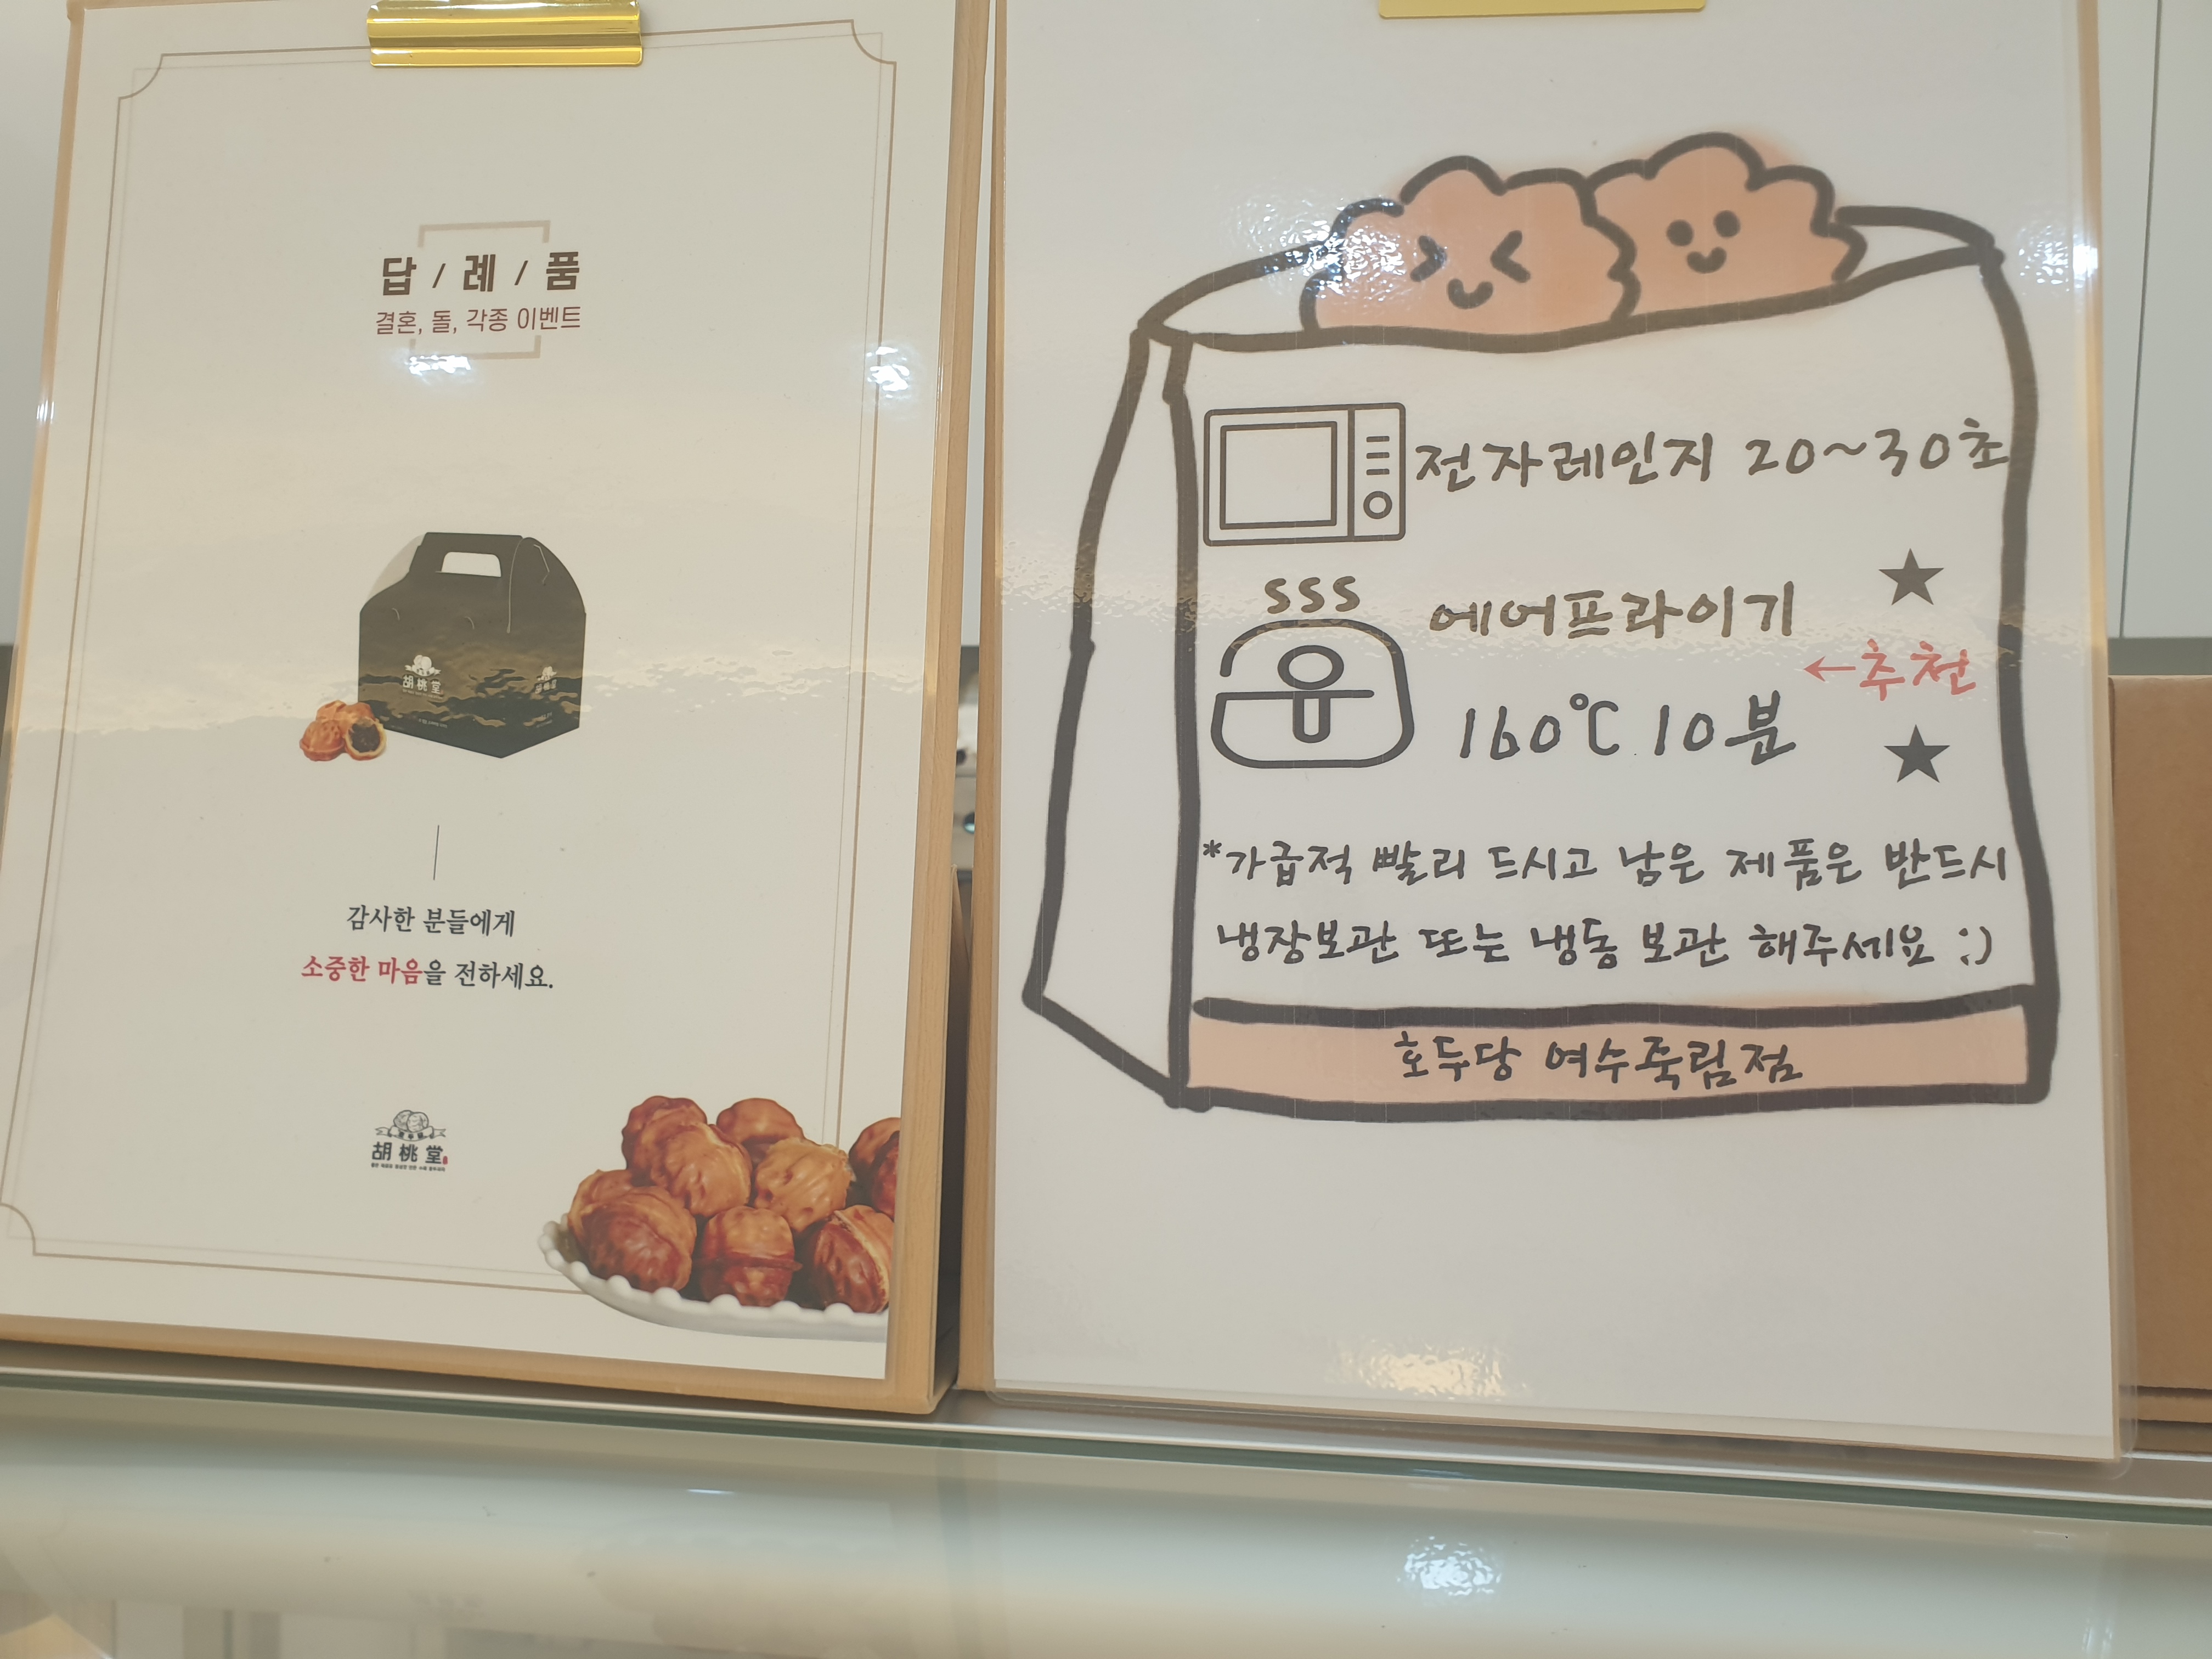 답 / 례 / 품
결혼, 돌, 각종 이벤트
胡桃堂
감사한 분들에게
소중한 마음을 전하세요.
胡桃堂
전자레인지 20~30초
sss
에어프라이기
←추천
160℃ 10분
*가급적 빨리 드시고 남은 제품은 반드시
냉장보관 또는 냉동 보관 해주세요 :)
호두당 여수죽림점